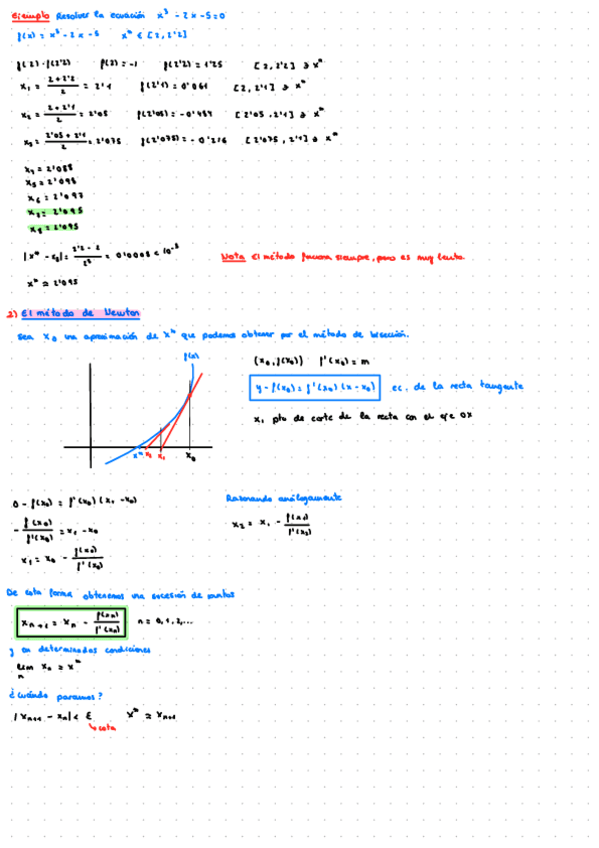 Ejemplo Resolver la ecuación x³ - 2x - 5 = 0
f(x) = x³ - 2x - 5   x* ∈ [2, 2'2]
f(2)·f(2'2)   f(2) = -1   f(2'2) = 1'25   [2, 2'2] ∋ x*
x₁ = (2 + 2'2)/2 = 2'1   f(2'1) = 0'061   [2, 2'1] ∋ x*
x₂ = (2 + 2'1)/2 = 2'05   f(2'05) = -0'484   [2'05, 2'1] ∋ x*
x₃ = (2'05 + 2'1)/2 = 2'075   f(2'075) = -0'216   [2'075, 2'1] ∋ x*
x₄ = 2'088
x₅ = 2'098
x₆ = 2'097
x₇ = 2'095
x₈ = 2'095
|x* - x₈| = (2'2 - 2)/2⁸ = 0'0008 < 10⁻³   Nota El método funciona siempre, pero es muy lento
x* ≃ 2'095
2) El método de Newton
Sea x₀ una aproximación de x* que podemos obtener por el método de bisección.
f(x)
(x₀, f(x₀))   f'(x₀) = m
y - f(x₀) = f'(x₀)(x - x₀)   ec. de la recta tangente
x₁ pto de corte de la recta con el eje OX
x* x₂ x₁ x₀
0 - f(x₀) = f'(x₀)(x₁ - x₀)   Razonando análogamente
- f(x₀)/f'(x₀) = x₁ - x₀   x₂ = x₁ - f(x₁)/f'(x₁)
x₁ = x₀ - f(x₀)/f'(x₀)
De esta forma obtenemos una sucesión de puntos
xₙ₊₁ = xₙ - f(xₙ)/f'(xₙ)   n = 0, 1, 2,...
y en determinadas condiciones
lim xₙ = x*
n
¿Cuándo paramos?
|xₙ₊₁ - xₙ| < ε   x* ≃ xₙ₊₁
↳ cota